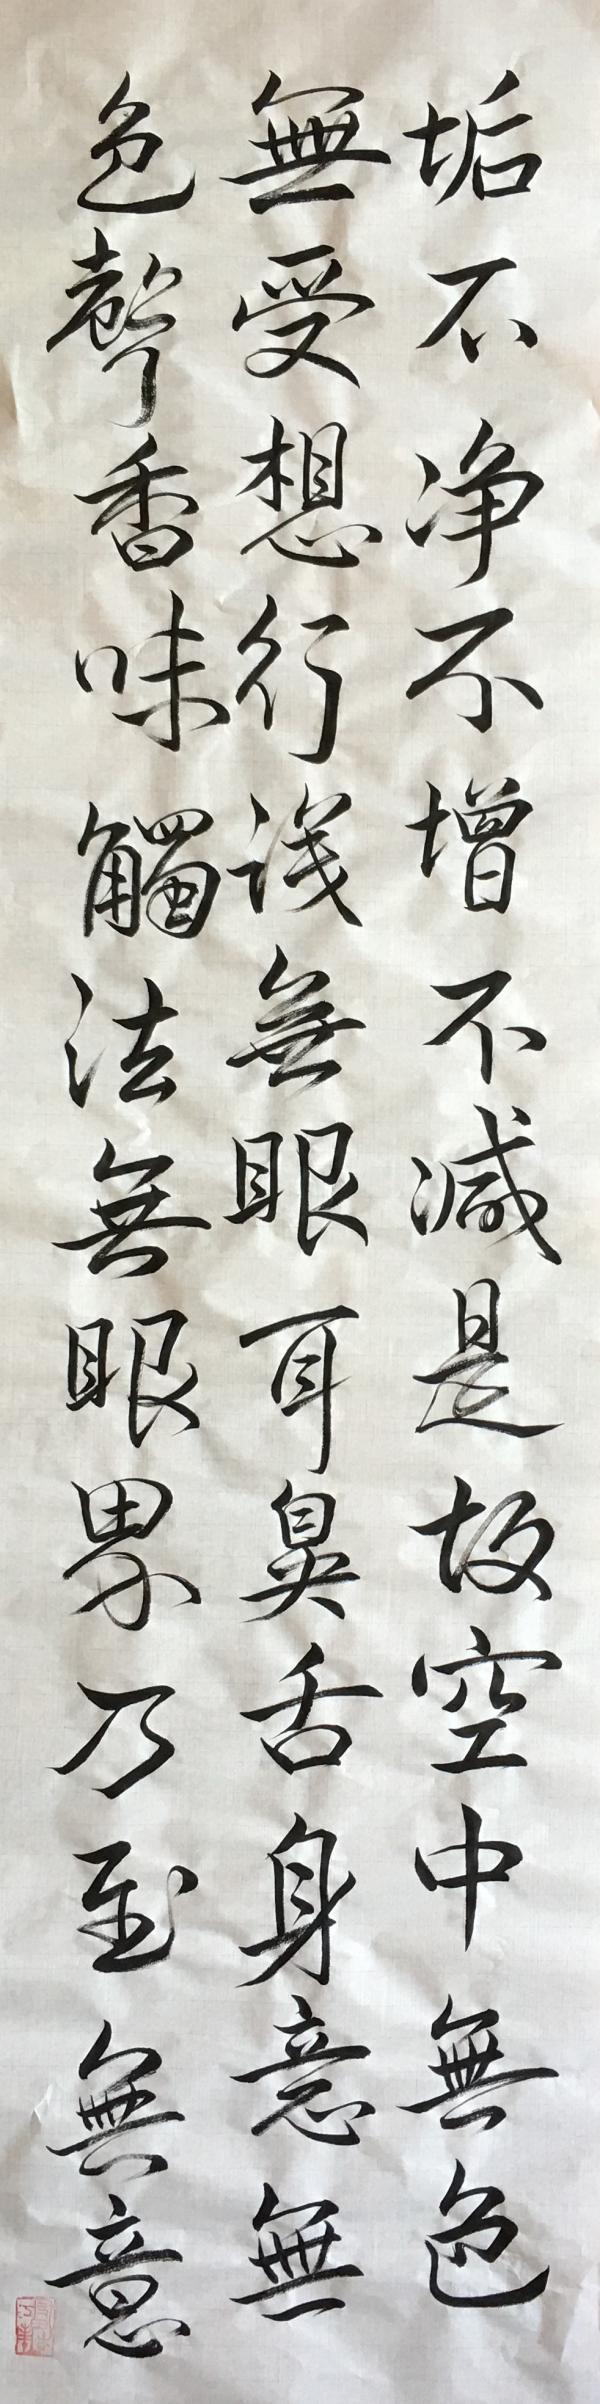 垢不净不增不减是故空中無色
無受想行識無眼耳鼻舌身意無
色聲香味觸法無眼界乃至無意